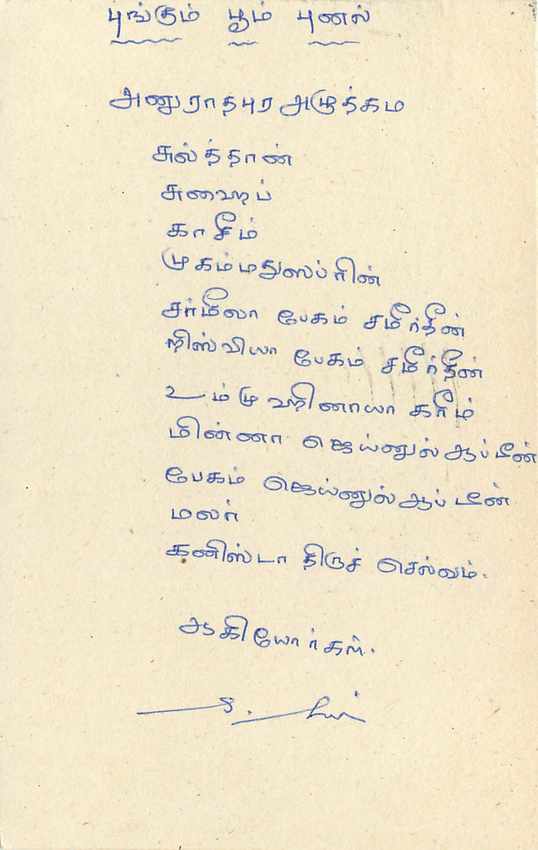 புங்கும் பூம் புனல்
அனுராதபுர அழுத்கம
சுல்த்தான்
சுஹைப்
காசீம்
முகம்மதுஸப்ரின்
சர்மீலா பேகம் சமீர்தீன்
றிஸ்வியா பேகம் சமீர்தீன்
உம்மு ஹினாயா கரீம்
மின்னா ஜெய்னுல் ஆப்டீன்
பேகம் ஜெய்னுல் ஆப்டீன்
மலர்
கனிஸ்டா திருச் செல்வம்.
ஆகியோர்கள்.